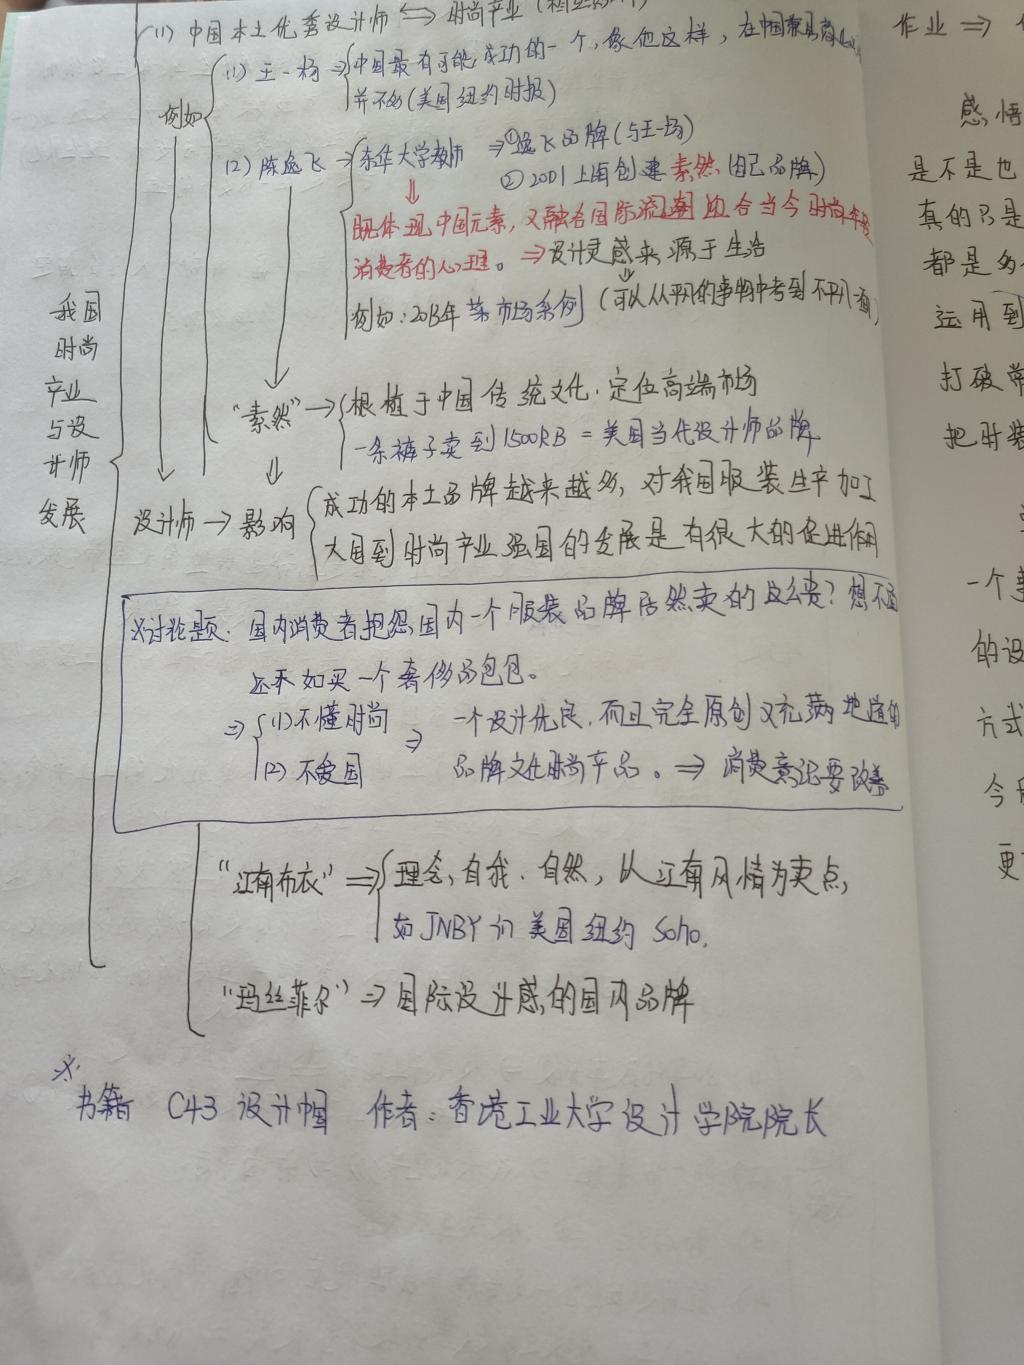 (1) 中国本土优秀设计师 ⟺ 时尚产业
例如
(1) 王一扬 ⇒ 中国最有可能成功的一个,像他这样,在中国兼具商
并不多(美国纽约时报)
(2) 陈逸飞 → 东华大学教师 ⇒ ①逸飞品牌(与王一扬)
②2001上海创建素然(自己品牌)
⇓
既体现中国元素,又融合国际流潮 迎合当今时尚年轻
消费者的心理。⇒设计灵感来源于生活
例如:2013年 菜市场系列 (可以从平凡的事物中考到不平凡面)
我国
时尚
产业
与设
计师
发展
“素然” → 根植于中国传统文化.定位高端市场
一条裤子卖到1500RB = 美国当代设计师品牌
设计师 → 影响 成功的本土品牌越来越多,对我国服装生产加工
大国到时尚产业强国的发展是有很大的促进作用
※讨论题: 国内消费者抱怨国内一个服装品牌居然卖的这么贵?想不通
还不如买一个奢侈品包包。
⇒ (1) 不懂时尚
(2) 不爱国
⇒ 一个设计优良,而且完全原创又充满地道的
品牌文化时尚产品。⇒ 消费意识要改善
“江南布衣” ⇒ 理念,自我.自然,从江南风情为卖点,
如JNBY in 美国纽约 Soho.
“玛丝菲尔” ⇒ 国际设计感的国内品牌
※
书籍 C43 设计中国 作者:香港工业大学设计学院院长
作业 ⇒
感悟
是不是也
真的只是
都是多
运用到
打破常
把时装
一个
的设
方式
今
更